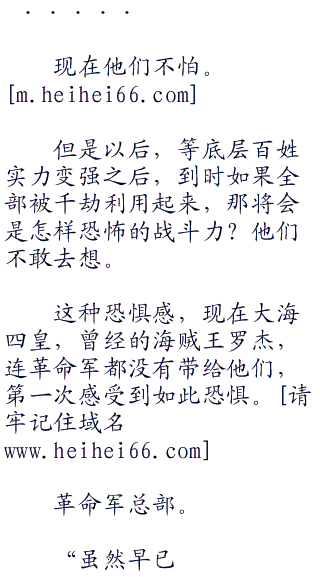 ．．．．．
现在他们不怕。
[m.heihei66.com]
但是以后，等底层百姓
实力变强之后，到时如果全
部被千劫利用起来，那将会
是怎样恐怖的战斗力？他们
不敢去想。
这种恐惧感，现在大海
四皇，曾经的海贼王罗杰，
连革命军都没有带给他们，
第一次感受到如此恐惧。[请
牢记住域名
www.heihei66.com]
革命军总部。
“虽然早已